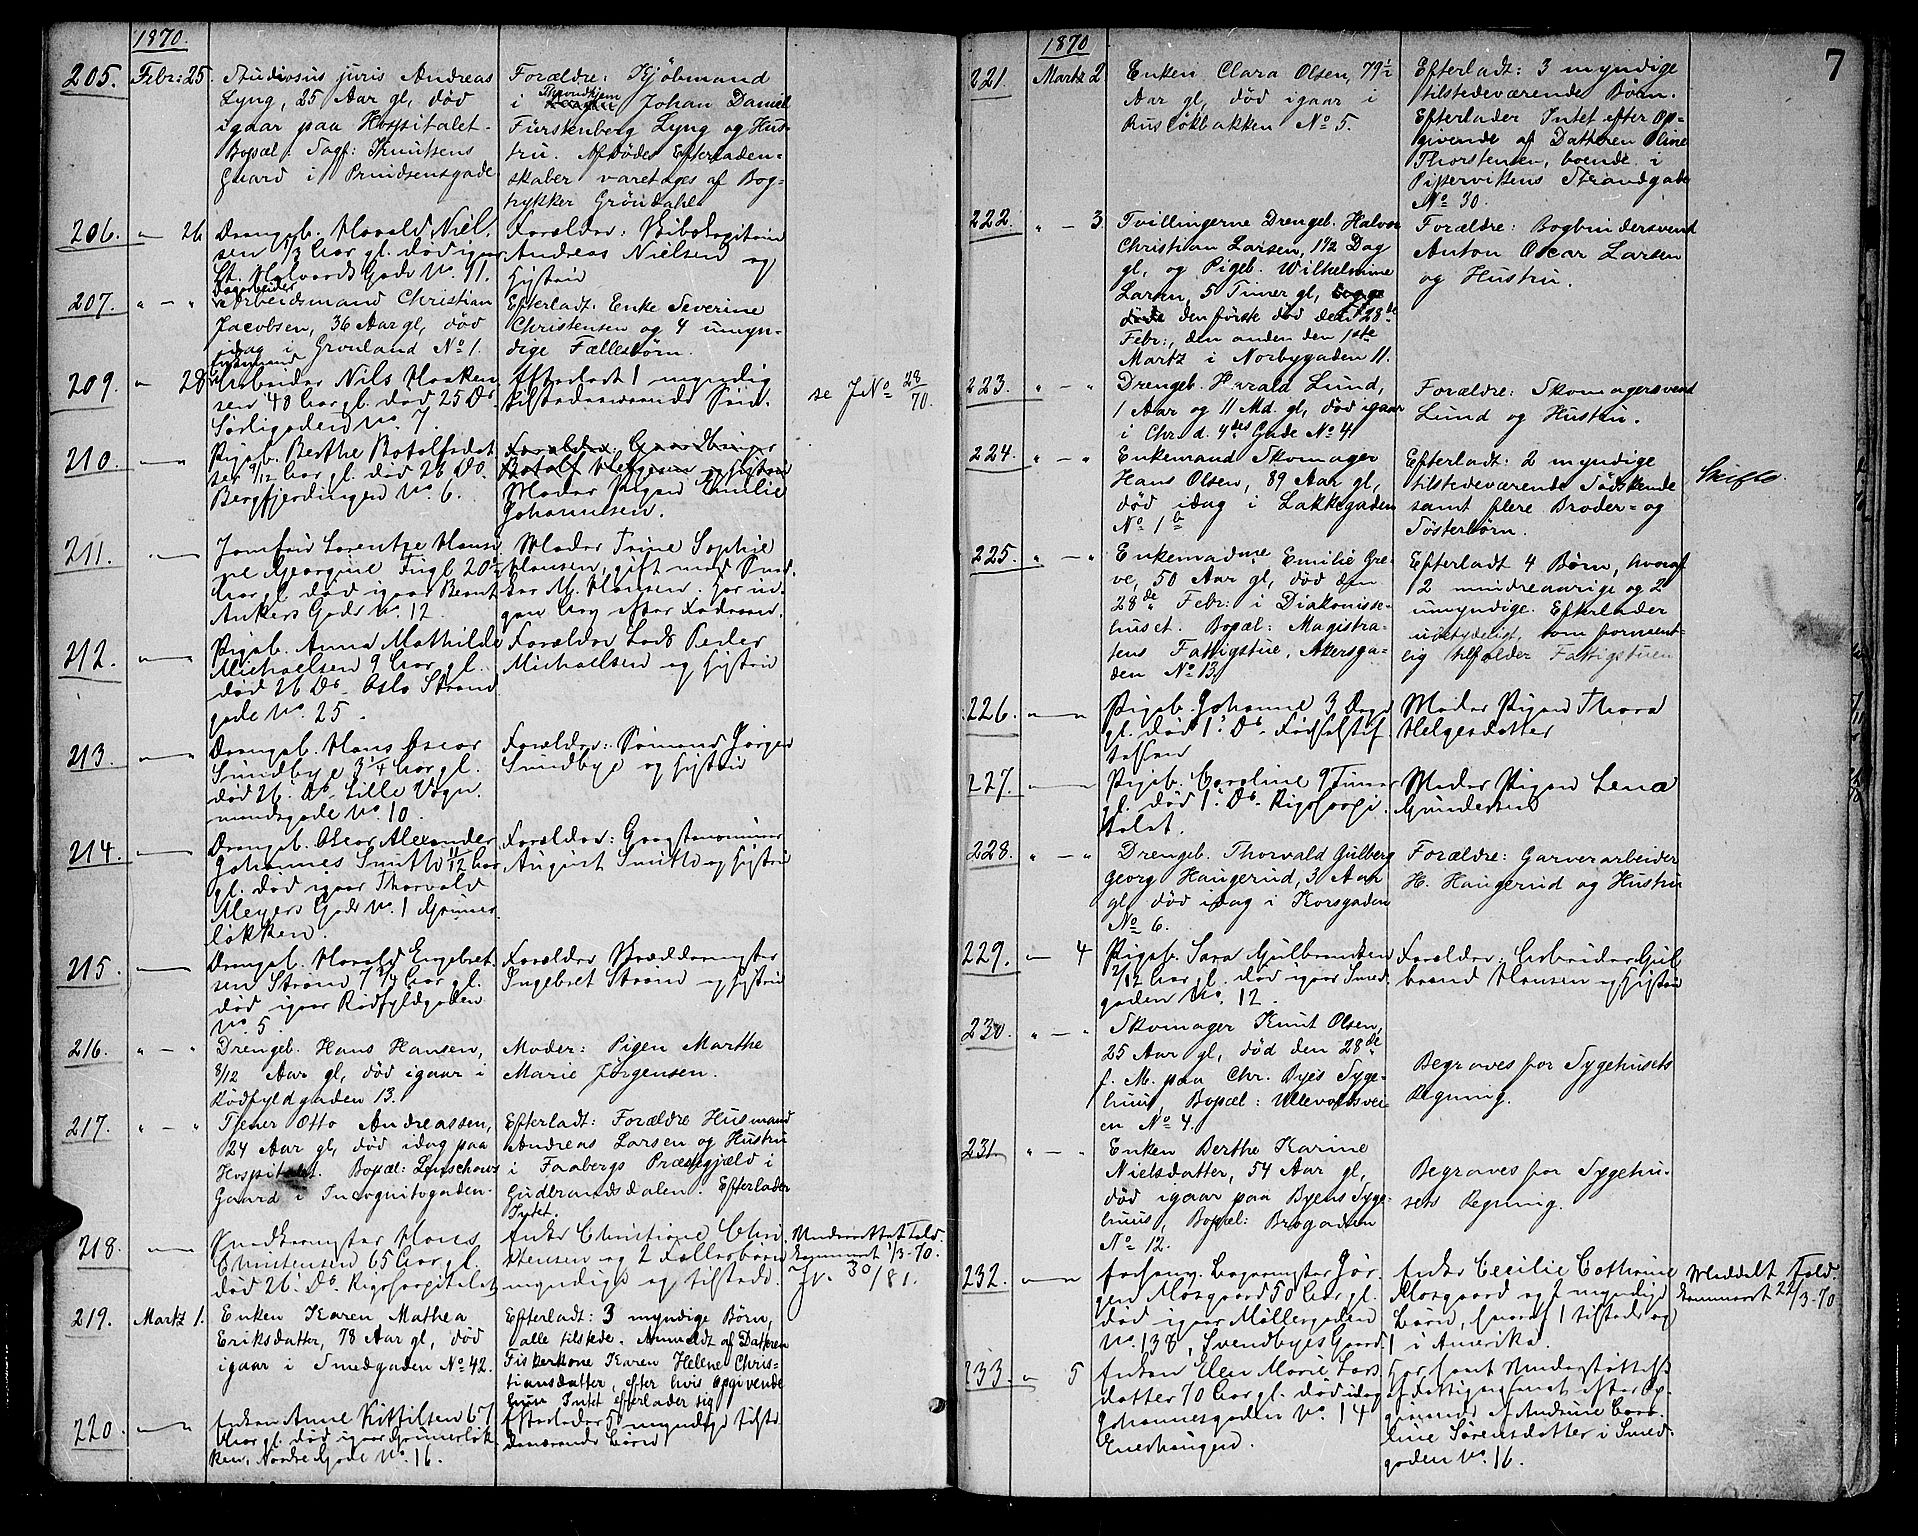 1870.
205. Febr: 25. Studiosus juris Andreas
Lyng, 25 Aar gl, død
igaar paa Hospitalet.
Bopæl: Sagf: Knutsens
Gaard i Prindsensgade
Forældre: Kjøbmand
i Throndhjem Johan Daniel
Fürstenberg Lyng og Hus-
tru. Afdødes Efterladen-
skaber varetages af Bog-
trykker Gröndahl
206. " 26 Drengeb. Harald Niel-
sen 1/3 Aar gl. død igaar
St. Halvards Gade No. 11.
Forældre:
Andreas Nielsen og
Hustru
207. " - " Dagarbeider
Arbeidsmand Christian
Jacobsen, 36 Aar gl, død
idag i Grønland No 1.
Efterladt: Enke Severine
Christensen og 4 umyn-
dige Fællesbørn.
209. " 28 Arbeider Nils Haaken-
sen 48 Aar gl. død 25 Ds
Sörligaden No. 7.
Efterladt 1 myndig
tilstedeværende Søn.
se J No 28/70.
210. Pigeb. Berthe Botolfsdat-
ter 9/12 Aar gl. død 26 Ds.
Bergfjerdingen No 6.
Forældre: Gaardbruger
Botolf Helgesen og Hustru
Moder Pigen Emilie
Johannesen.
211. Jomfru Lorentze Hansi-
ne Georgine Fugl 20 1/2
Aar gl. død igaar Bernt
Ankers Gade No. 12.
Moder Trine Sophie
Hansen, gift med
M. Hansen. Har in-
gen Arv efter Faderen.
212. Pigeb. Anna Mathilde
Michaelsen 9 Aar gl.
død 26 Ds. Oslo Strand
gade No. 25.
Forældre Lods Peder
Michaelsen og Hustru
213. Drengeb. Hans Oscar
Sundbye 3 1/4 Aar gl.
død 26. Ds. Lille Vogn-
mandsgade No. 10.
Forældre: Sömand Jörgen
Sundbye og Hustru
214. Drengeb. Oscar Alexander
Johannes Smith 11/12 Aar
gl. død igaar Thorvald
Meyers Gade No. 1 Grüner-
løkken.
Forældre:
August Smith og Hustru
215. Drengeb. Harald Engebret-
sen Strand 7 3/4 Aar gl.
død igaar Rødfyldgaden
No. 5.
Forældre
Ingebret Strand og Hustru
216. " - " Drengeb. Hans Hansen,
8/12 Aar gl, død igaar i
Rødfyldgaden 13.
Moder: Pigen Marthe
Marie Jørgensen.
217. " - " Tjener Otto Andreassen,
24 Aar gl, død idag paa
Hospitalet. Bopæl: Lenschows
Gaard i Incognitogaden.
Efterladt: Forældre Husmand
Andreas Larsen og Hustru
i Faabergs Præstegjæld i
Gudbrandsdalen. Efterlader
Intet.
218. Hans
Christensen 65 Aar gl.
død 26. Ds. Rigshospitalet
Enke Christiane Chri-
stensen og 2 Fællesbørn
myndige og tilstede.
Underrettet Told-
kammeret 1/3-70.
Jr. 30/81.
219. Martz 1. Enken Karen Mathea
Eriksdatter, 78 Aar gl, død
igaar i Smedgaden No 42.
Efterladt: 3 myndige Børn,
alle tilstede. Anmeldt af Datteren
Fiskerkone Karen Helene Chris-
tiansdatter, efter hvis Opgivende
hun Intet efterlader sig.
220. Enken Anne Kittilsen 67
Aar gl. død igaar Grünerløk-
ken, Nordre Gade No. 16.
Efterlader 5 myndige tilste-
deværende Børn
7
1870
221. Martz 2 Enken Clara Olsen, 79 1/2
Aar gl, død igaar i
Ruseløkbakken No 5.
Efterladt: 3 myndige
tilstedeværende Børn.
Efterlader Intet efter Op-
givende af Datteren Oline
Thorstensen, boende i
Pipervikens Strandgade
No 30.
222. " - 3. Tvillingerne Drengeb. Halvor
Christian Larsen, 1 1/2 Dag
gl, og Pigeb. Wilhelmine
Larsen, 5 Timer gl, begge
døde den første død den 28de
Febr:, den anden den 1ste
Martz i Norbygaden 11.
Forældre: Bogbindersvend
Anton Oscar Larsen
og Hustru.
223. " - " Drengeb. Harald Lund,
1 Aar og 11 Md. gl, død igaar
i Chr. d. 4des Gade No 4.
Forældre: Skomagersvend
Lund og Hustru.
224. " - " Enkemand Skomager
Hans Olsen, 89 Aar gl,
død idag i Lakkegaden
No 1b
Efterladt: 2 myndige
tilstedeværende Sødskende
samt flere Broder- og
Søsterbørn.
Skifte.
225. " - " Enkemadme Emilie Gre-
ve, 50 Aar gl, død den
28de Febr: i Diakonisse-
huset. Bopæl: Magistra-
tens Fattigstue, Akersga-
den No 13.
Efterladt 4 Børn, hvoraf
2 mindreaarige og 2
umyndige. Efterlader
ubetydeligt, som forment-
lig tilfalder Fattigstuen
226. Pigeb. Johanne 3 Dage
gl. død 1. Ds. Fødselsstif-
telsen
Moder Pigen Thora
Helgesdatter
227. Pigeb. Caroline 9 Timer
gl. død 1. Ds. Rigshospi-
talet.
Moder Pigen Lena
Gundersen
228. " - " Drengeb. Thorvald Gulberg
Georg Haugerud, 3 Aar
gl, død idag i Korsgaden
No 6.
Forældre: Garverarbeider
H. Haugerud og Hustru
229. " 4 Pigeb. Sara Gulbrandsen
2/12 Aar gl. død igaar Smed-
gaden No. 12.
Forældre: Arbeider Gul-
brand Hansen og Hustru
230. " - " Skomager Knut Olsen,
25 Aar gl, død den 28de
f. M. paa Chr. Byes Syge-
huus, Bopæl: Ullevoldsvei-
en No 4.
Begraves for Sygehusets
Regning.
231. " - " Enken Berthe Karine
Nielsdatter, 54 Aar gl,
død igaar paa Byens Syge-
huus, Bopæl: Brogaden
No 12.
Begraves for Sygehu-
sets Regning.
232. Jør-
gen Mosgaard 50 Aar gl.
død igaar Möllergaden
No. 138, Svendbyes Gaard.
Enke Cecilie Cathrine
Mosgaard og 2 myndige
Børn, hvoraf 1 tilstede og
1 i Amerika.
Meddelt Told-
kammeret 22/3-70
233. " 5 Enken Elen Marie Lars-
datter 70 Aar gl. død idag
Johannesgaden No. 14
Enerhaugen.
Har havt Understøttelse
af Fattigvæsenet efter Op-
givende af Andrine Caro-
line Sørensdatter i Smed-
gaden No. 16.